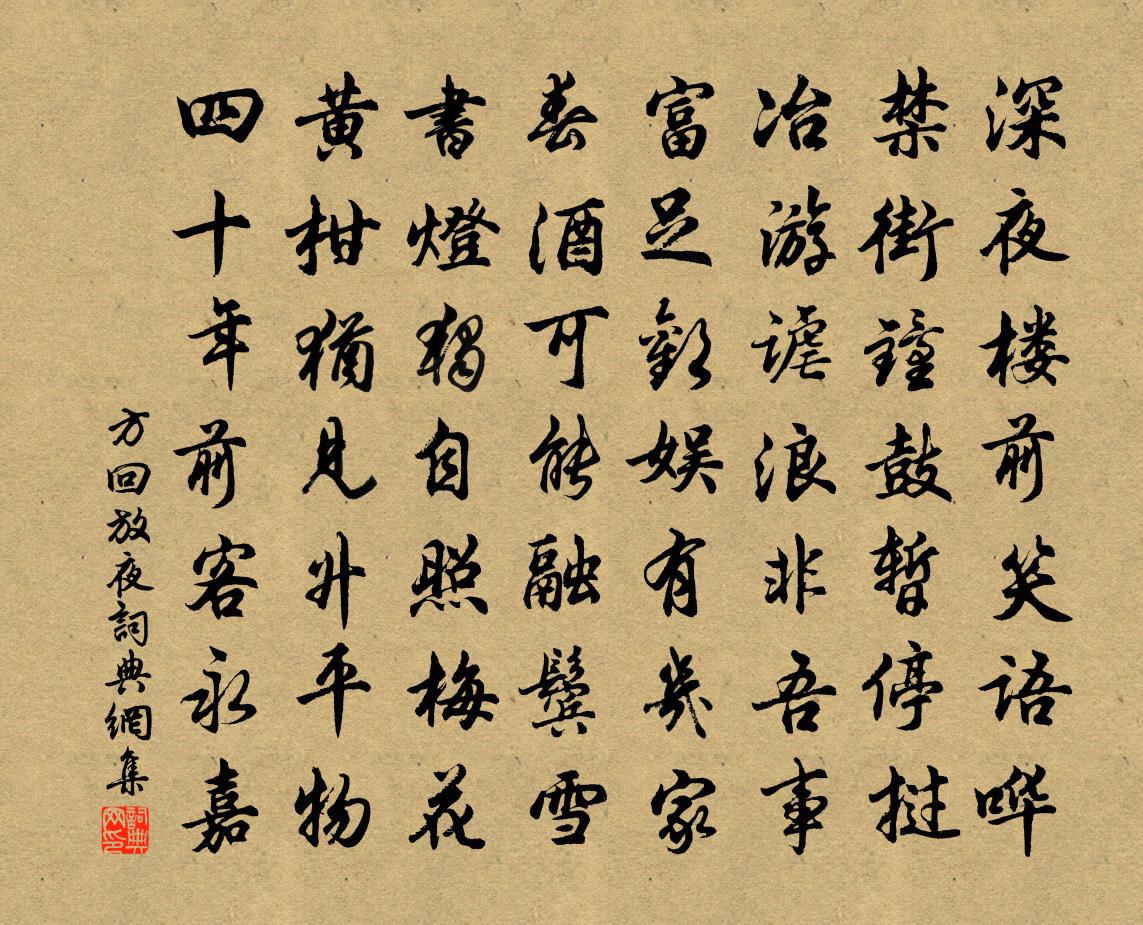 深夜楼前笑语哗
禁街鐘鼓暂停挝
冶游谑浪非吾事
富足歡娱有幾家
春酒可能融鬓雪
書燈獨自照梅花
黄柑猶見升平物
四十年前客永嘉
方回放夜詞典網集
詞典网印